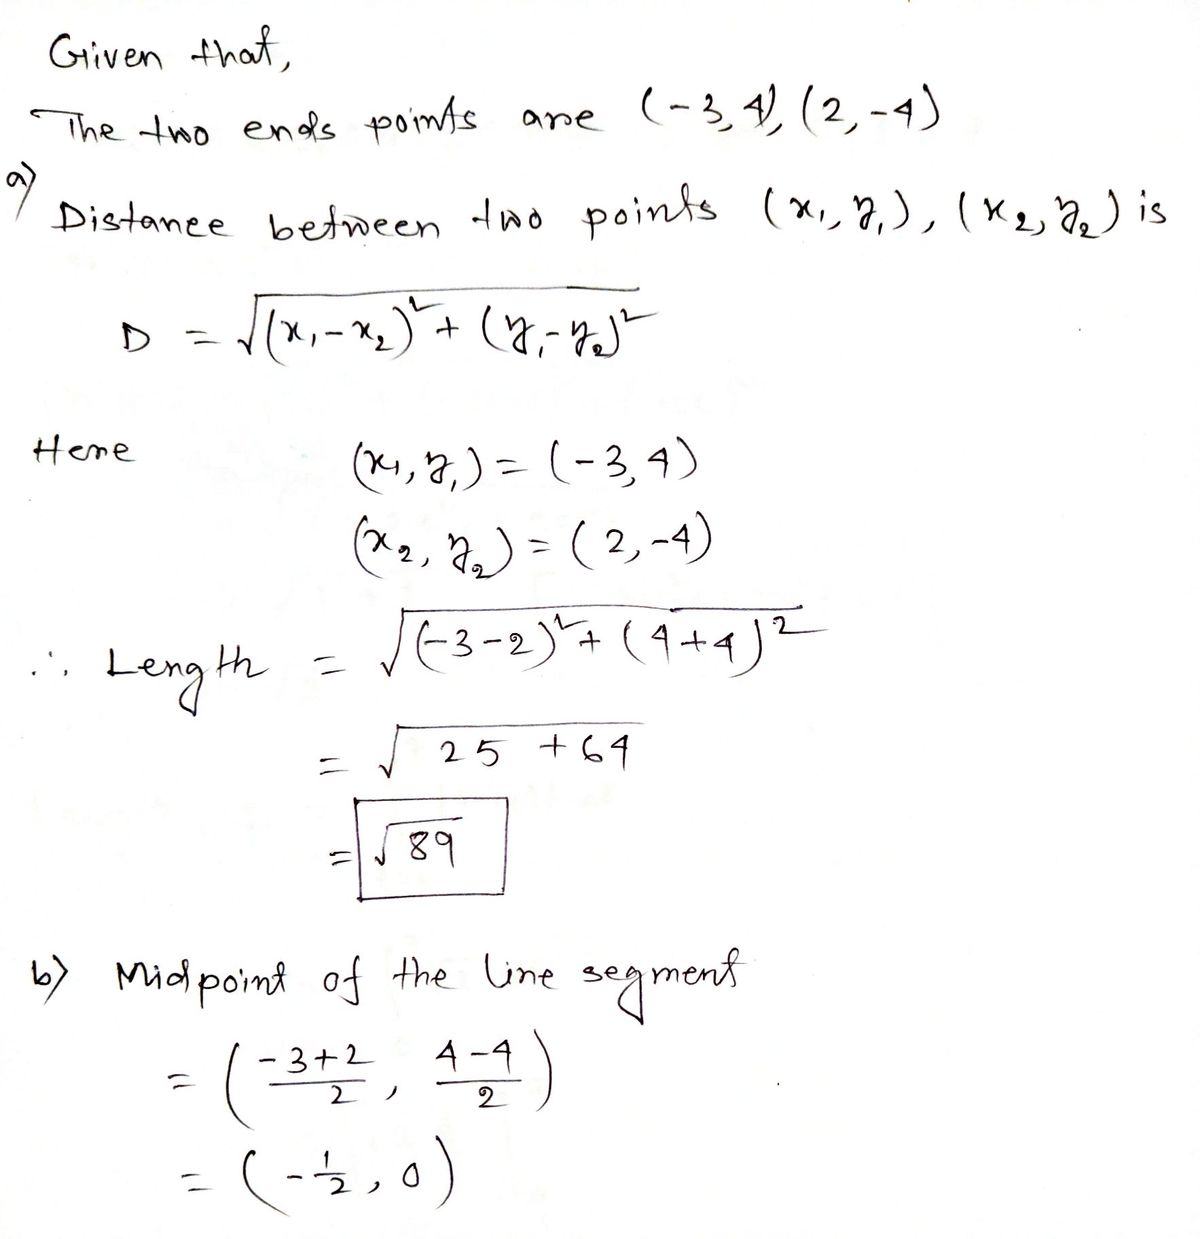 Given that,
The two ends points are (-3,4), (2,-4)
a)
Distance between two points (x₁, y₁), (x₂, y₂) is
D = √((x₁-x₂)² + (y₁-y₂)²)
Here (x₁, y₁) = (-3,4)
(x₂, y₂) = (2,-4)
∴ Length = √((-3-2)² + (4+4)²)
= √(25 + 64)
= √89
b) Midpoint of the line segment
= ((-3+2)/2, (4-4)/2)
= (-1/2, 0)